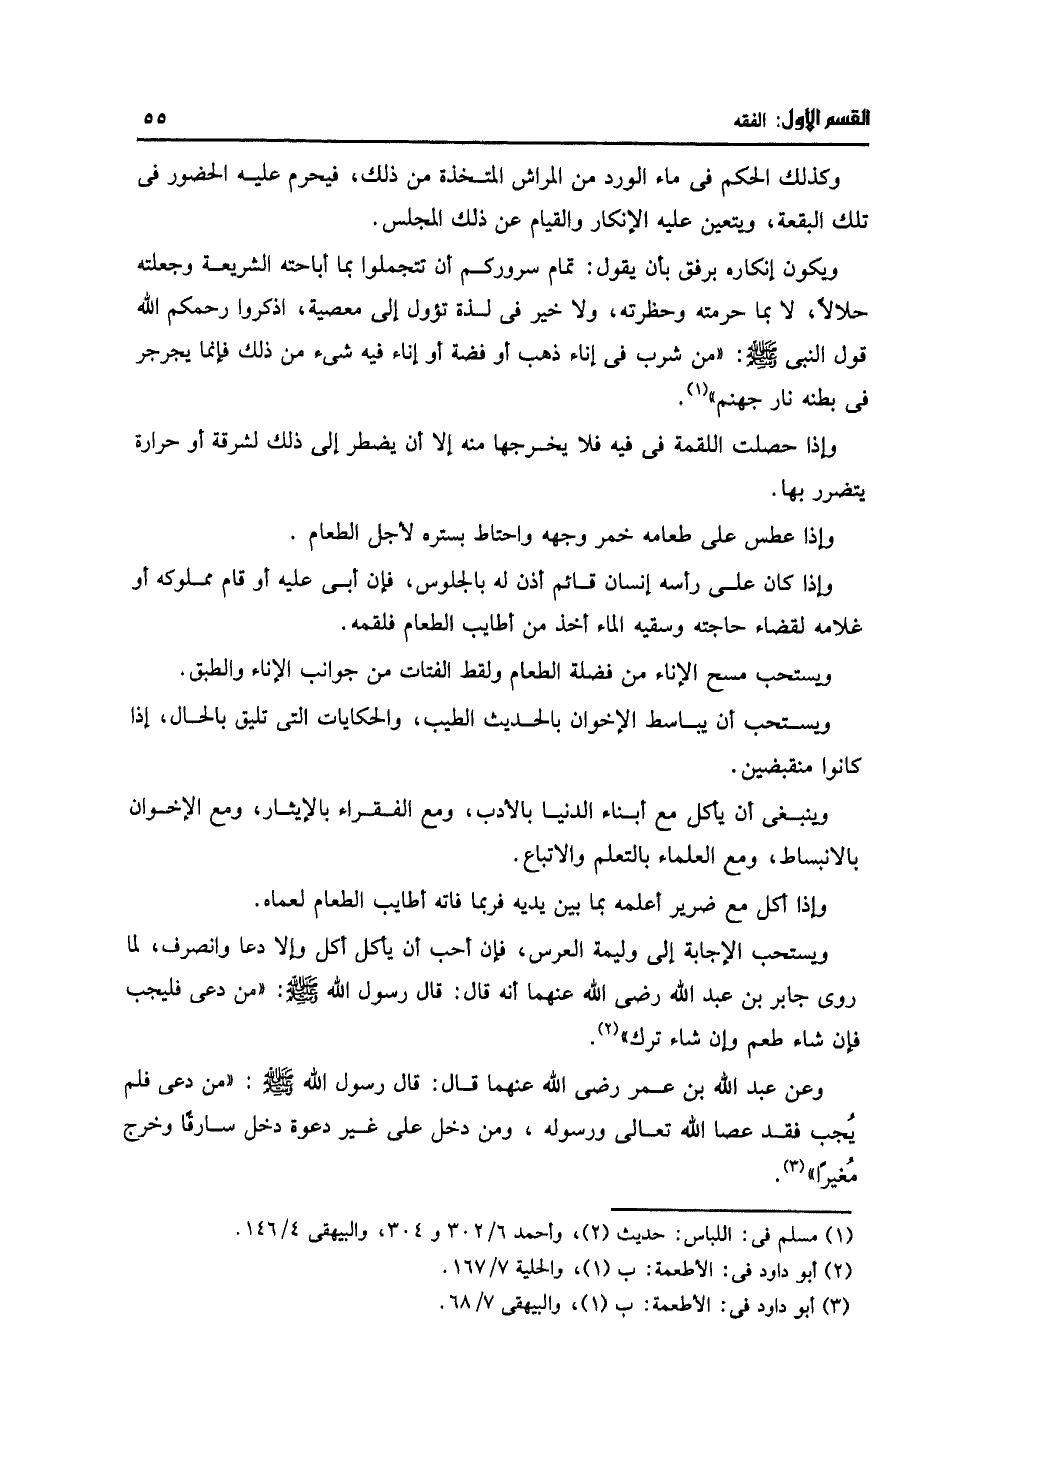 القسم الأول: الفقه ٥٥
وكذلك الحكم فى ماء الورد من المراش المتخذة من ذلك، فيحرم عليه الحضور فى
تلك البقعة، ويتعين عليه الإنكار والقيام عن ذلك المجلس.
ويكون إنكاره برفق بأن يقول: تمام سروركم أن تتجملوا بما أباحته الشريعة وجعلته
حلالاً، لا بما حرمته وحظرته، ولا خير فى لذة تؤول إلى معصية، اذكروا رحمكم الله
قول النبى ﷺ: «من شرب فى إناء ذهب أو فضة أو إناء فيه شىء من ذلك فإنما يجرجر
فى بطنه نار جهنم»(١).
وإذا حصلت اللقمة فى فيه فلا يخرجها منه إلا أن يضطر إلى ذلك لشرقة أو حرارة
يتضرر بها.
وإذا عطس على طعامه خمر وجهه واحتاط بستره لأجل الطعام .
وإذا كان على رأسه إنسان قائم أذن له بالجلوس، فإن أبى عليه أو قام مملوكه أو
غلامه لقضاء حاجته وسقيه الماء أخذ من أطايب الطعام فلقمه.
ويستحب مسح الإناء من فضلة الطعام ولقط الفتات من جوانب الإناء والطبق.
ويستحب أن يباسط الإخوان بالحديث الطيب، والحكايات التى تليق بالحال، إذا
كانوا منقبضين.
وينبغى أن يأكل مع أبناء الدنيا بالأدب، ومع الفقراء بالإيثار، ومع الإخوان
بالانبساط، ومع العلماء بالتعلم والاتباع.
وإذا أكل مع ضرير أعلمه بما بين يديه فربما فاته أطايب الطعام لعماه.
ويستحب الإجابة إلى وليمة العرس، فإن أحب أن يأكل أكل وإلا دعا وانصرف، لما
روى جابر بن عبد الله رضى الله عنهما أنه قال: قال رسول الله ﷺ: «من دعى فليجب
فإن شاء طعم وإن شاء ترك»(٢).
وعن عبد الله بن عمر رضى الله عنهما قال: قال رسول الله ﷺ : «من دعى فلم
يُجب فقد عصا الله تعالى ورسوله ، ومن دخل على غير دعوة دخل سارقًا وخرج
مُغيرًا»(٣).
(١) مسلم فى: اللباس: حديث (٢)، وأحمد ٣٠٢/٦ و ٣٠٤، والبيهقى ١٤٦/٤.
(٢) أبو داود فى: الأطعمة: ب (١)، والحلية ١٦٧/٧.
(٣) أبو داود فى: الأطعمة: ب (١)، والبيهقى ٦٨/٧.